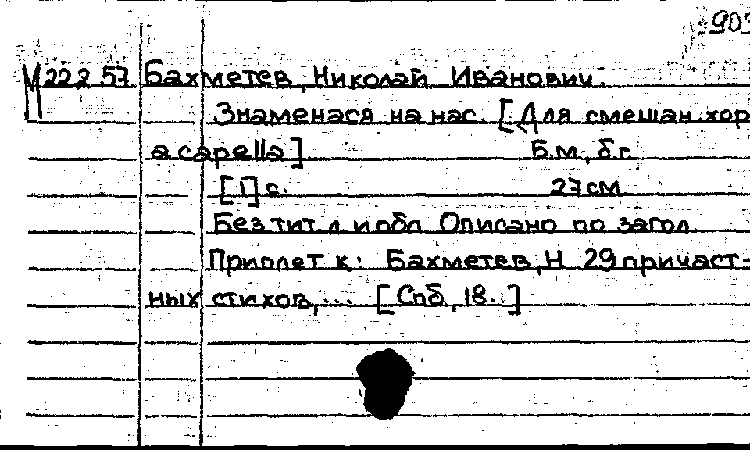 903
М 222 57 Бахметев, Николай Иванович.
Знаменася на нас. [Для смешан хор
a capella] Б.м., б.г.
[1] с. 27 см
Без тит л и обл Описано по загол
Приплет к: Бахметев, Н 29 причаст-
ных стихов, ... [Спб, 18. ]